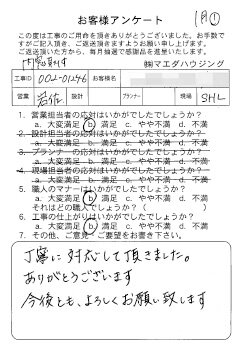 お客様アンケート
1月①
この度は工事のご用命を頂きありがとうございました。お手数で
すがご記入頂き、ご返送頂きますようお願い申し上げます。
ご返送頂いた方から、毎月抽選で感謝品を進呈いたします。
㈱マエダハウジング
工事ID 002-01246 お客様名
営業 岩佐 設計 プランナー 現場 SHL
1. 営業担当者の応対はいかがでしたでしょうか?
a. 大変満足 b. 満足 c. やや不満 d. 不満
2. 設計担当者の応対はいかがでしたでしょうか?
a. 大変満足 b. 満足 c. やや不満 d. 不満
3. プランナーの応対はいかがでしたでしょうか?
a. 大変満足 b. 満足 c. やや不満 d. 不満
4. 現場担当者の応対はいかがでしたでしょうか?
a. 大変満足 b. 満足 c. やや不満 d. 不満
5. 職人のマナーはいかがでしたでしょうか?
a. 大変満足 b. 満足 c. やや不満 d. 不満
それはどの職人でしょうか?( )
6. 工事の仕上がりはいかがでしたでしょうか?
a. 大変満足 b. 満足 c. やや不満 d. 不満
7. その他、ご意見・ご要望をお書き下さい。
丁寧に対応して頂きました。
ありがとうございます
今後とも、よろしくお願い致します